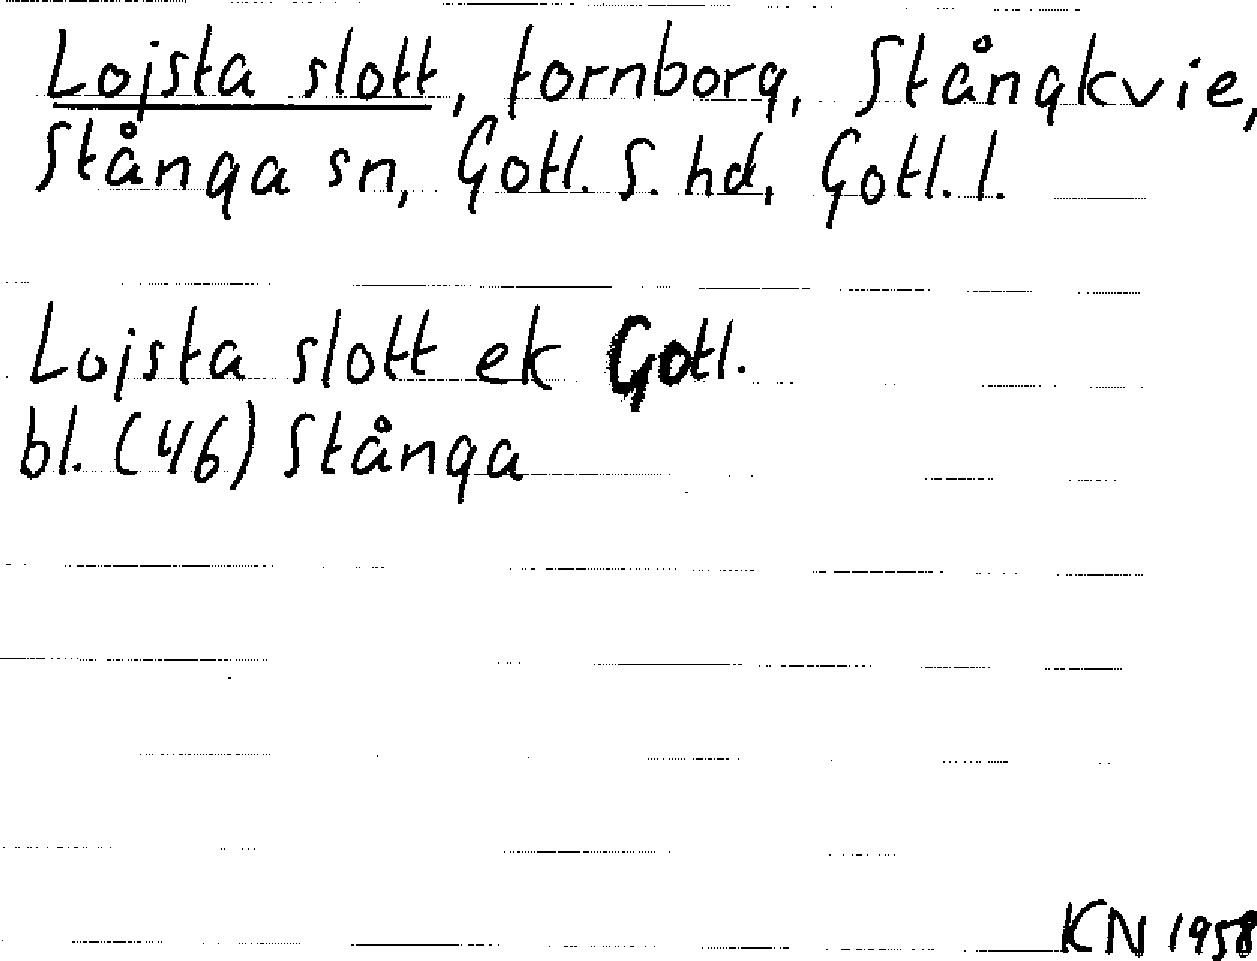 Lojsta slott, fornborg, Stångkvie,
Stånga sn, Gotl. S. hd, Gotl. l.
Lojsta slott ek Gotl.
bl. (46) Stånga
KN 1958